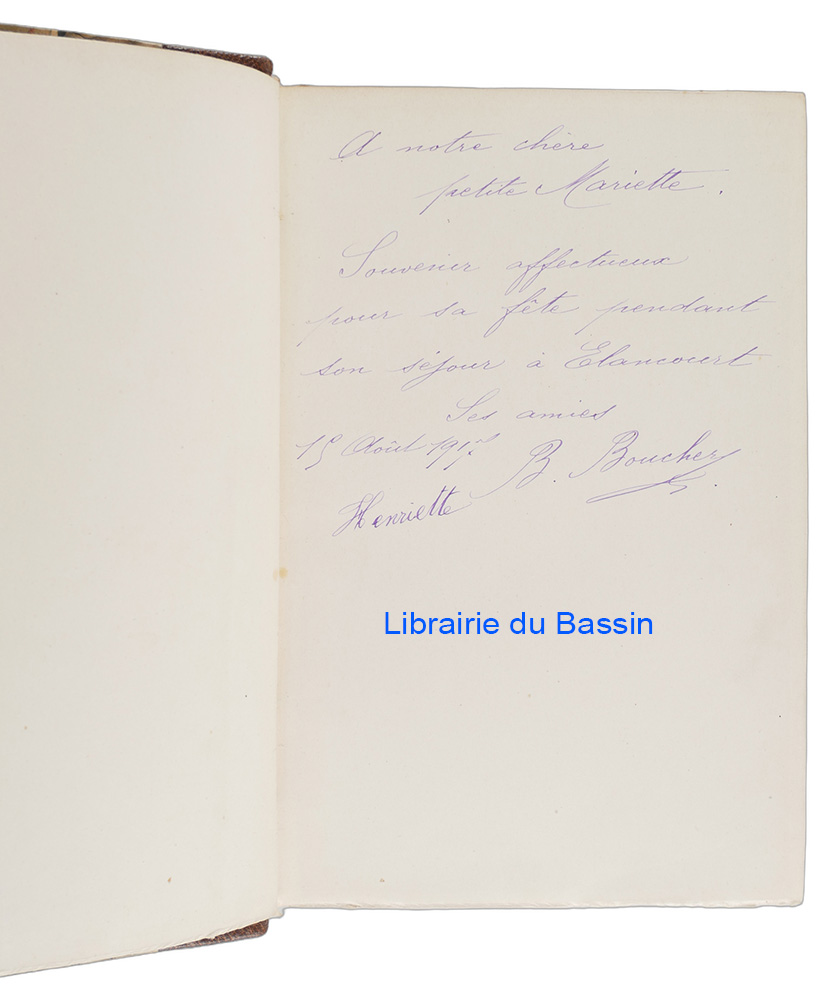 A notre chère
petite Mariette.
Souvenir affectueux
pour sa fête pendant
son séjour à Elancourt
Ses amies
15 Août 1917
B. Boucher.
Henriette
Librairie du Bassin